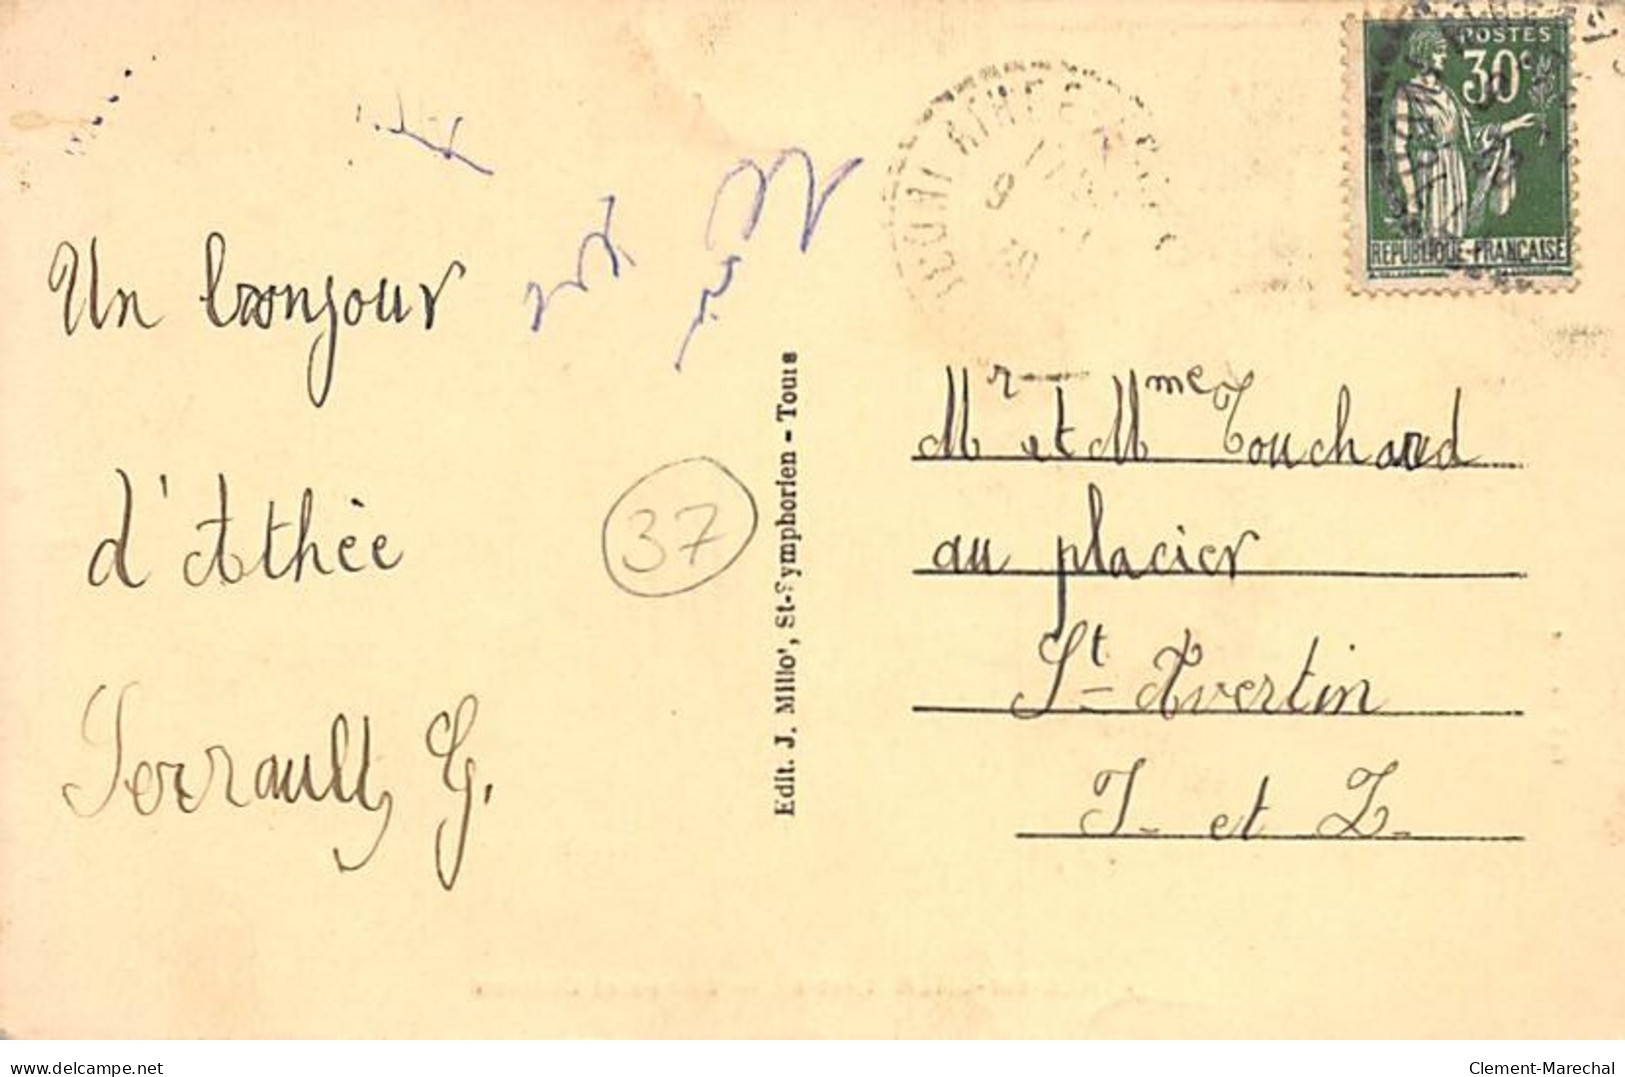 Un bonjour
d'Athée
Perrault G.
37
Edit. J. Millot, St-Symphorien - Tours
POSTES
30c
REPUBLIQUE-FRANCAISE
ATHEE
Mr et Mme Touchard
au placier
St- Avertin
I- et L-
delcampe.net
Clement-Marechal